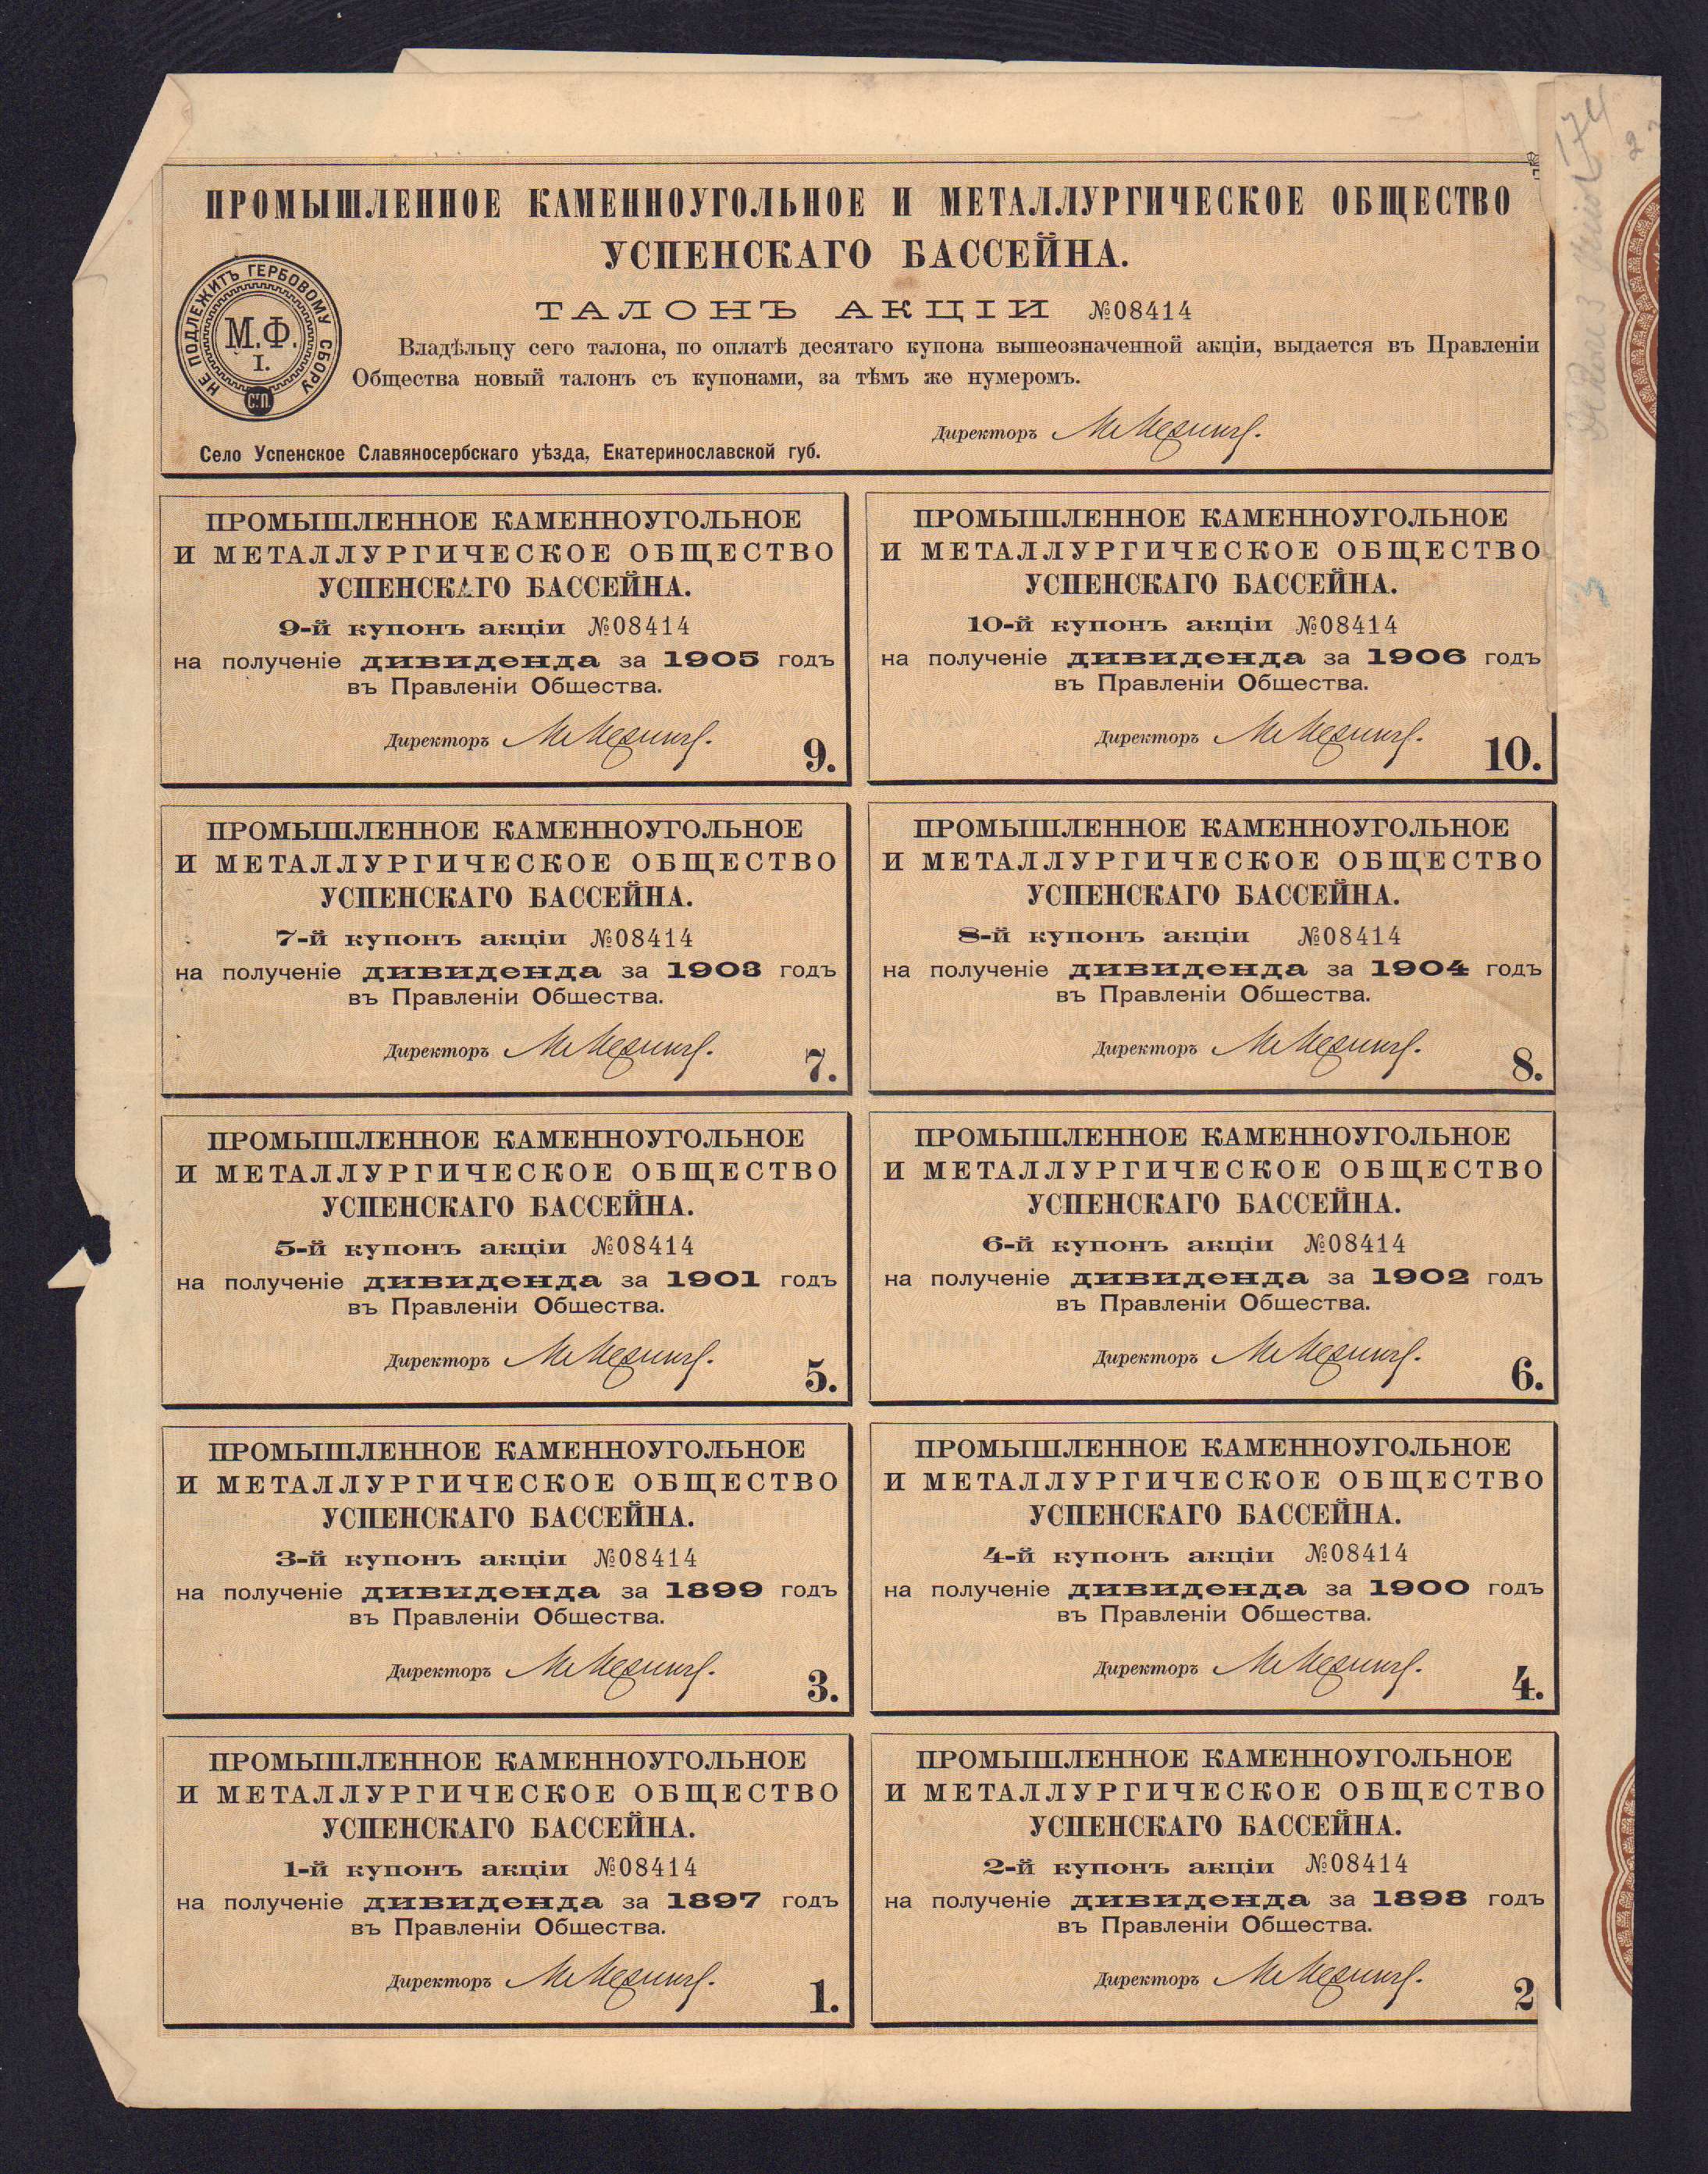 ПРОМЫШЛЕННОЕ КАМЕННОУГОЛЬНОЕ И МЕТАЛЛУРГИЧЕСКОЕ ОБЩЕСТВО
УСПЕНСКАГО БАССЕЙНА.
ТАЛОНЪ АКЦІИ №08414
НЕ ПОДЛЕЖИТЪ ГЕРБОВОМУ СБОРУ
М.Ф.
I.
С.П.
Владѣльцу сего талона, по оплатѣ десятаго купона вышеозначенной акціи, выдается въ Правленіи
Общества новый талонъ съ купонами, за тѣмъ же нумеромъ.
Директоръ
Село Успенское Славяносербскаго уѣзда, Екатеринославской губ.
174
2
3
ПРОМЫШЛЕННОЕ КАМЕННОУГОЛЬНОЕ
И МЕТАЛЛУРГИЧЕСКОЕ ОБЩЕСТВО
УСПЕНСКАГО БАССЕЙНА.
9-й купонъ акціи №08414
на полученіе дивиденда за 1905 годъ
въ Правленіи Общества.
Директоръ
9.
ПРОМЫШЛЕННОЕ КАМЕННОУГОЛЬНОЕ
И МЕТАЛЛУРГИЧЕСКОЕ ОБЩЕСТВО
УСПЕНСКАГО БАССЕЙНА.
10-й купонъ акціи №08414
на полученіе дивиденда за 1906 годъ
въ Правленіи Общества.
Директоръ
10.
ПРОМЫШЛЕННОЕ КАМЕННОУГОЛЬНОЕ
И МЕТАЛЛУРГИЧЕСКОЕ ОБЩЕСТВО
УСПЕНСКАГО БАССЕЙНА.
7-й купонъ акціи №08414
на полученіе дивиденда за 1903 годъ
въ Правленіи Общества.
Директоръ
7.
ПРОМЫШЛЕННОЕ КАМЕННОУГОЛЬНОЕ
И МЕТАЛЛУРГИЧЕСКОЕ ОБЩЕСТВО
УСПЕНСКАГО БАССЕЙНА.
8-й купонъ акціи №08414
на полученіе дивиденда за 1904 годъ
въ Правленіи Общества.
Директоръ
8.
ПРОМЫШЛЕННОЕ КАМЕННОУГОЛЬНОЕ
И МЕТАЛЛУРГИЧЕСКОЕ ОБЩЕСТВО
УСПЕНСКАГО БАССЕЙНА.
5-й купонъ акціи №08414
на полученіе дивиденда за 1901 годъ
въ Правленіи Общества.
Директоръ
5.
ПРОМЫШЛЕННОЕ КАМЕННОУГОЛЬНОЕ
И МЕТАЛЛУРГИЧЕСКОЕ ОБЩЕСТВО
УСПЕНСКАГО БАССЕЙНА.
6-й купонъ акціи №08414
на полученіе дивиденда за 1902 годъ
въ Правленіи Общества.
Директоръ
6.
ПРОМЫШЛЕННОЕ КАМЕННОУГОЛЬНОЕ
И МЕТАЛЛУРГИЧЕСКОЕ ОБЩЕСТВО
УСПЕНСКАГО БАССЕЙНА.
3-й купонъ акціи №08414
на полученіе дивиденда за 1899 годъ
въ Правленіи Общества.
Директоръ
3.
ПРОМЫШЛЕННОЕ КАМЕННОУГОЛЬНОЕ
И МЕТАЛЛУРГИЧЕСКОЕ ОБЩЕСТВО
УСПЕНСКАГО БАССЕЙНА.
4-й купонъ акціи №08414
на полученіе дивиденда за 1900 годъ
въ Правленіи Общества.
Директоръ
4.
ПРОМЫШЛЕННОЕ КАМЕННОУГОЛЬНОЕ
И МЕТАЛЛУРГИЧЕСКОЕ ОБЩЕСТВО
УСПЕНСКАГО БАССЕЙНА.
1-й купонъ акціи №08414
на полученіе дивиденда за 1897 годъ
въ Правленіи Общества.
Директоръ
1.
ПРОМЫШЛЕННОЕ КАМЕННОУГОЛЬНОЕ
И МЕТАЛЛУРГИЧЕСКОЕ ОБЩЕСТВО
УСПЕНСКАГО БАССЕЙНА.
2-й купонъ акціи №08414
на полученіе дивиденда за 1898 годъ
въ Правленіи Общества.
Директоръ
2